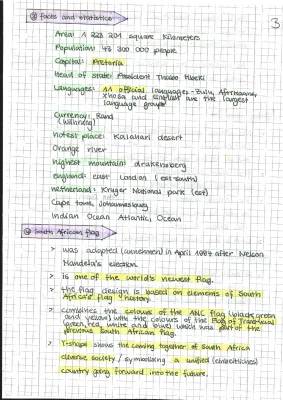 3
@ facts and statistics
Area: 1 223 201 square kilometers
Population: 43 300 000 people
Capital: Pretoria
Head of state: President Thabo Mbeki
Languages: 11 official languages - Zulu, Afrikaans,
Xhosa and English are the largest
language groups
Currency: Rand
(Währung)
hotest place: Kalahari desert
Orange river
highest mountain: drakensberg
england: east London (east-south)
netherland: Kruger National park (est)
Cape town, Johannesburg
Indian Ocean Atlantic, Ocean
@ South African flag
> was adopted (annehmen) in April 1994 after Nelson
Mandela's election.
> is one of the world's newest flag.
> the flag design is based on elements of South
Africa's flag history.
> combines the colours of the ANC flag (black, green
and yellow) with the colours of the Boer of Transvaal
(green, red, white and blue) which was part of the
previous South African flag.
> Y-shape shows the coming together of South Africa
diverse society / symbolising a unified (einheitliches)
country going forward into the future.